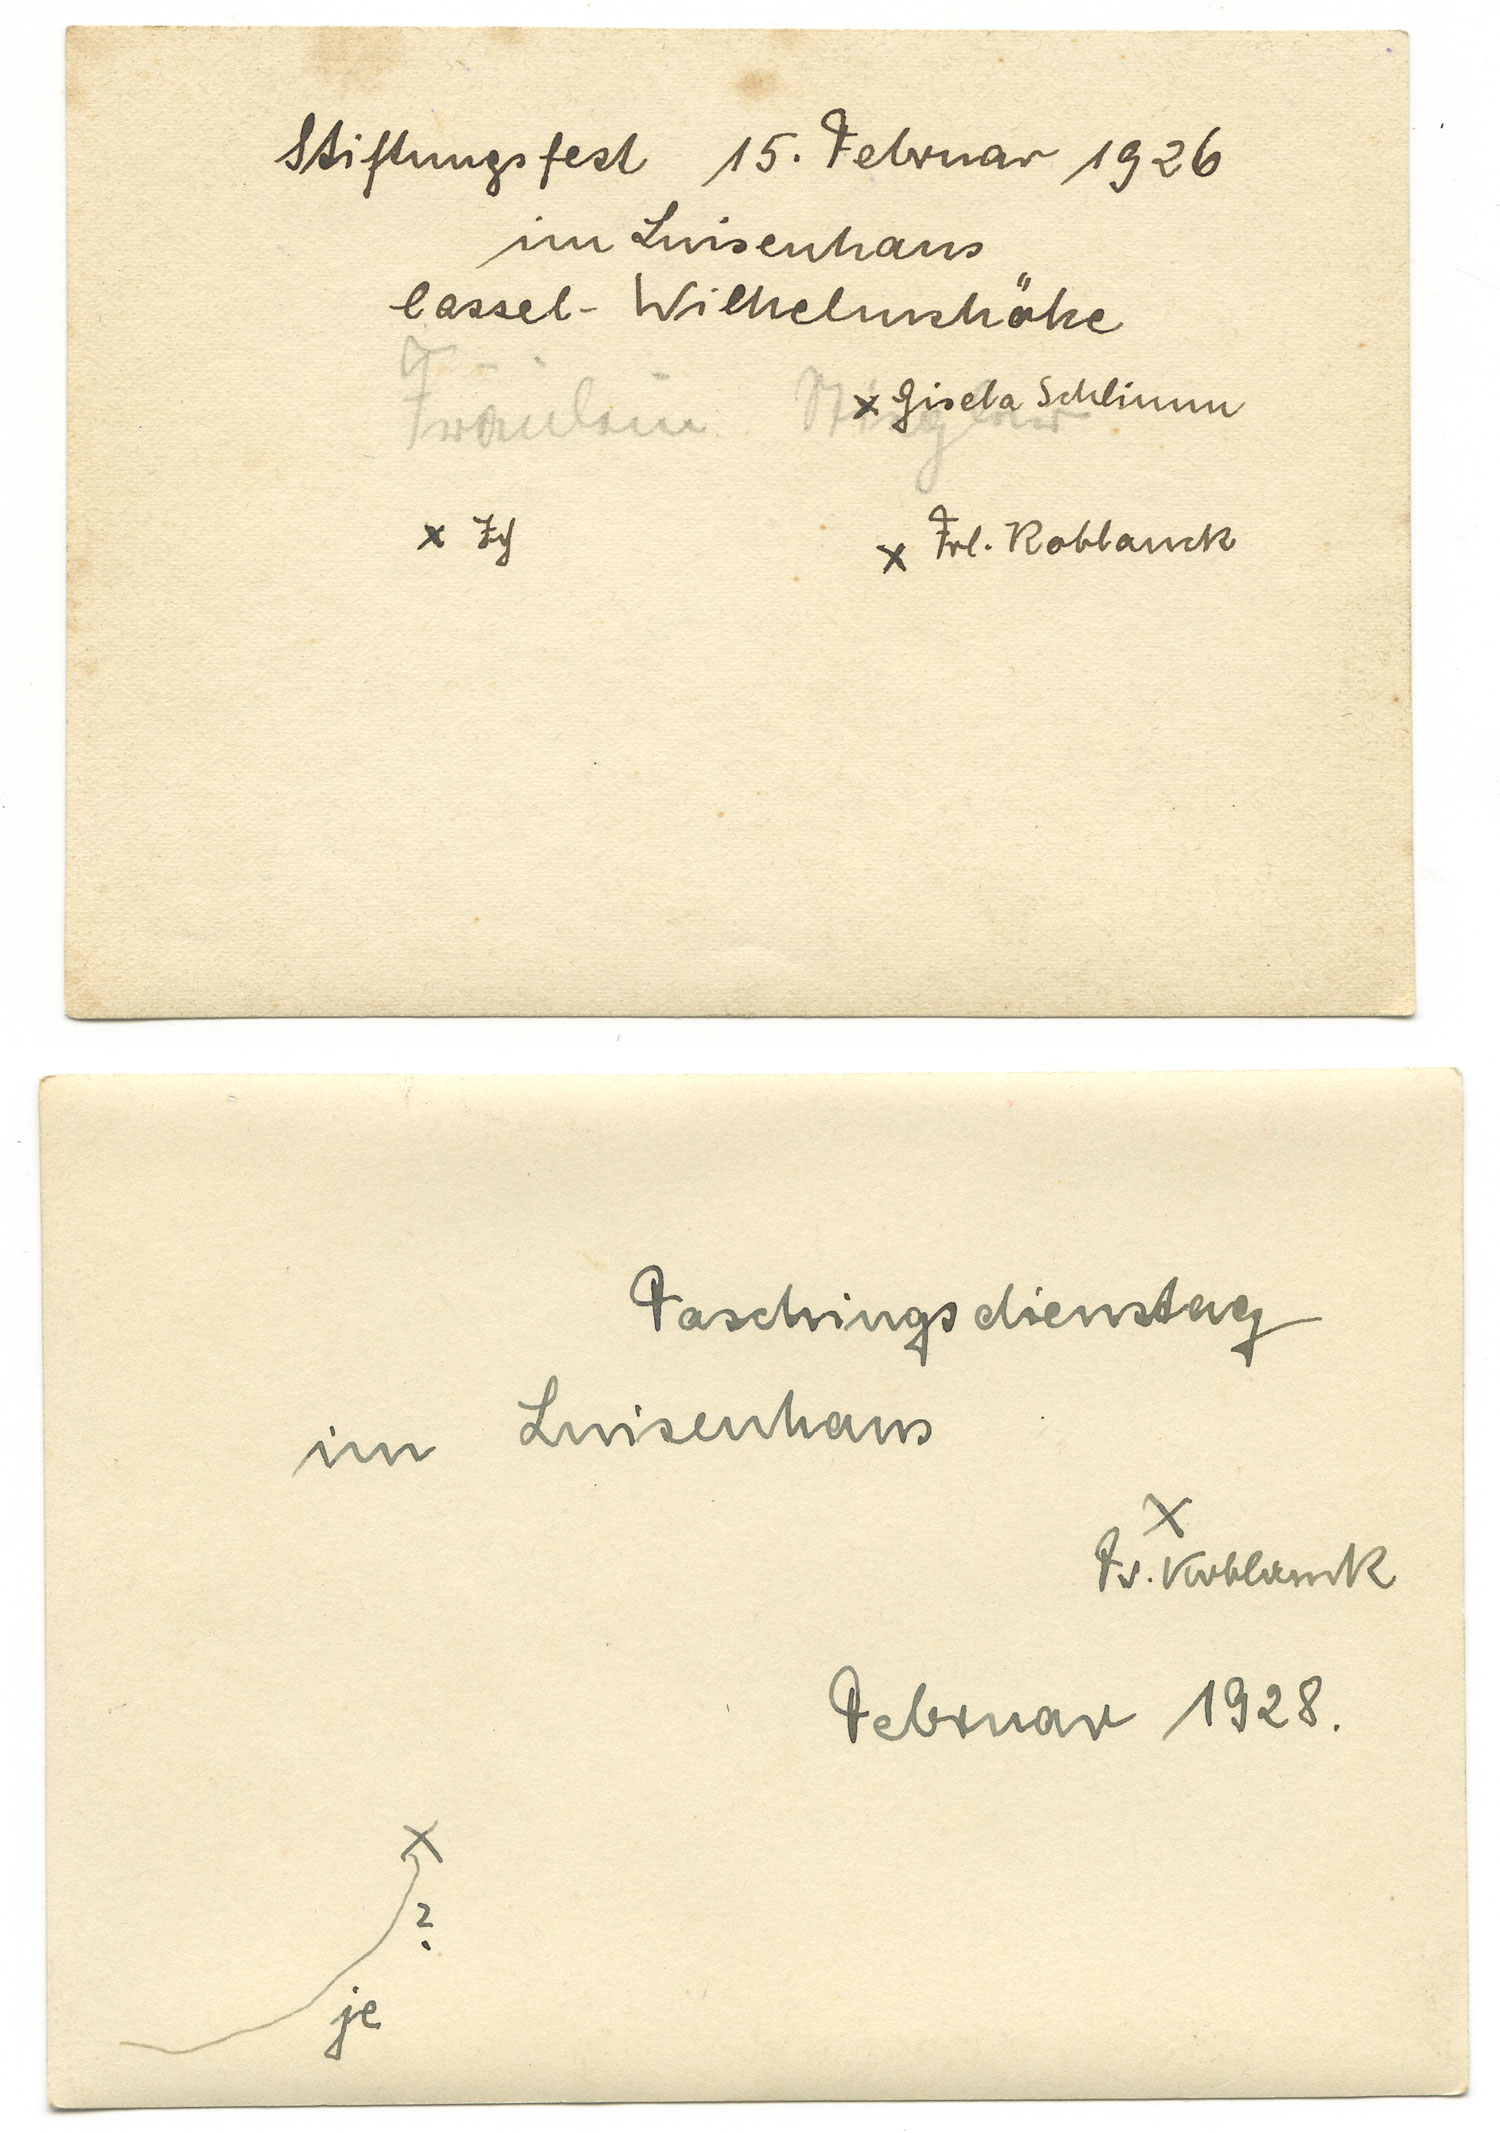 Stiftungsfest 15. Februar 1926
im Luisenhaus
Cassel-Wilhelmshöhe
Fräulein
x Gisela Schlimm
x x Frl. Koblanck
Faschingsdienstag
im Luisenhaus
x
Fr. Koblanck
Februar 1928.
x
?
je